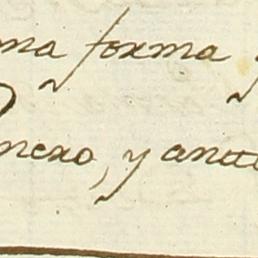 ma forma
nero, y ante